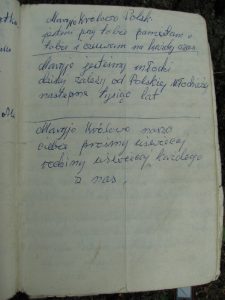 Maryjo Królowo Polski
jestem przy tobie pamiętam o
tobie i czuwam na każdy czas
Maryjo jestemy młodzi
dużo zależy od Polskiej młodzieży
następne tysiąc lat
Maryjo Królowo nasza
ciebie prosimy
rodziny każdego
z nas.